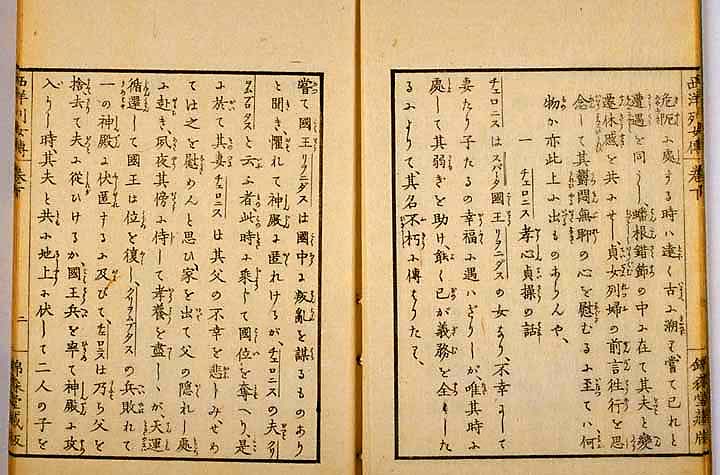 西洋列女傳 卷下
危厄に處する時ハ遠く古に溯て、嘗て已れと
遭遇を同うし、蟠根錯節の中に在て其夫と變
遷休感を共にせし貞女列婦の前言徃行を思
念して其欝悶無聊の心を慰むるに至てハ何
物か亦此上に出ものあらんや、
一 チェロニス孝心貞操の話
チェロニスはスパータ國王リヲニダスの女なり、不幸にして
妻たり子たるの幸福に遇ハざりしが唯其時に
處して其弱きを助け、能く已が義務を全うした
るによりて其名不朽に傳ちたて、
嘗て國王リヲニダスは國中に叛亂を謀るものあり
と聞き、懼れて神殿に匿れけるが、チェロニスの夫クリ
ヲムブダスと云ふ者此時に乘して國位を奪へり、是
に於て其妻チェロニスは其父の不幸を悲しみせめ
ては之を慰めんと思ひ、家を出て父の隱れし處
に赴き、夙夜其傍に侍して孝養を盡しゝが、天運
循還して國王は位を復し、クリヲムブダスの兵敗れて
一の神殿に伏匿するに及びて、チェロニスは乃ち父を
捨去て夫に從ひけるか、國王兵を率て神殿に攻
入りし時、其夫と共に地上に伏して二人の子を
西洋列女傳 卷下
二
錦森堂藏版